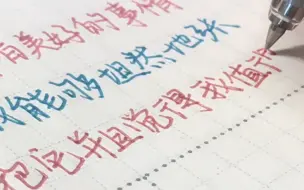 有美好的事情
能够坦然地张
把它并且觉得我值得